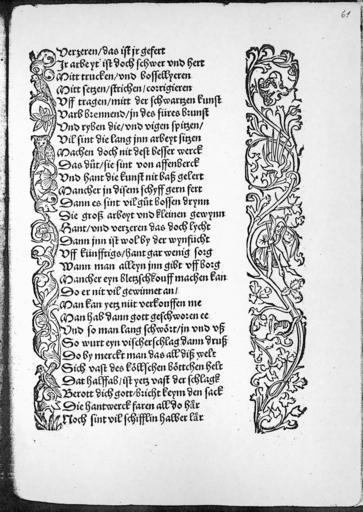 61
Verzeren/das ist jr gefert
Jr arbeyt ist doch schwer vnd hert
Mitt trucken/vnd bosseltyeren
Mitt setzen/strichen/corrigieren
Vff tragen/mitt der schwartzen kunst
Varb brennend/jn des füres brunst
Vnd ryben die/vnd vigen spitzen/
Vil sint die lang jnn arbeyt sitzen
Machen doch nit dest besser werck
Das düt/sie sint von affenberck
Vnd hant die kunst nit baß gelert
Mancher jn disem schyff gern fert
Dann es sint vil gůt bossen drynn
Die groß arbeyt vnd kleinen gewynn
Hant/vnd verzeren das doch lycht
Dann jnn ist wol by der wynfücht
Vff künfftigs/hant gar wenig sorg
Wann man alleyn jnn gibt vff borg
Mancher eyn bletzschkouff machen kan
Do er nit vil gewinnet an/
Man kan yetz nüt verkouffen me
Man hab dann gott geschworen ee
Vnd so man lang schwört/jn vnd vß
So wurt eyn vischerschlag dann druß
Do by merckt man das all diß welt
Sich vast des köllschen böttchen helt
Dat halffab/ist yetz vast der schlagk
Berott dich gott/bricht keym den sack
Die hantwerck faren all do här
Noch sint vil schifflin halber lär